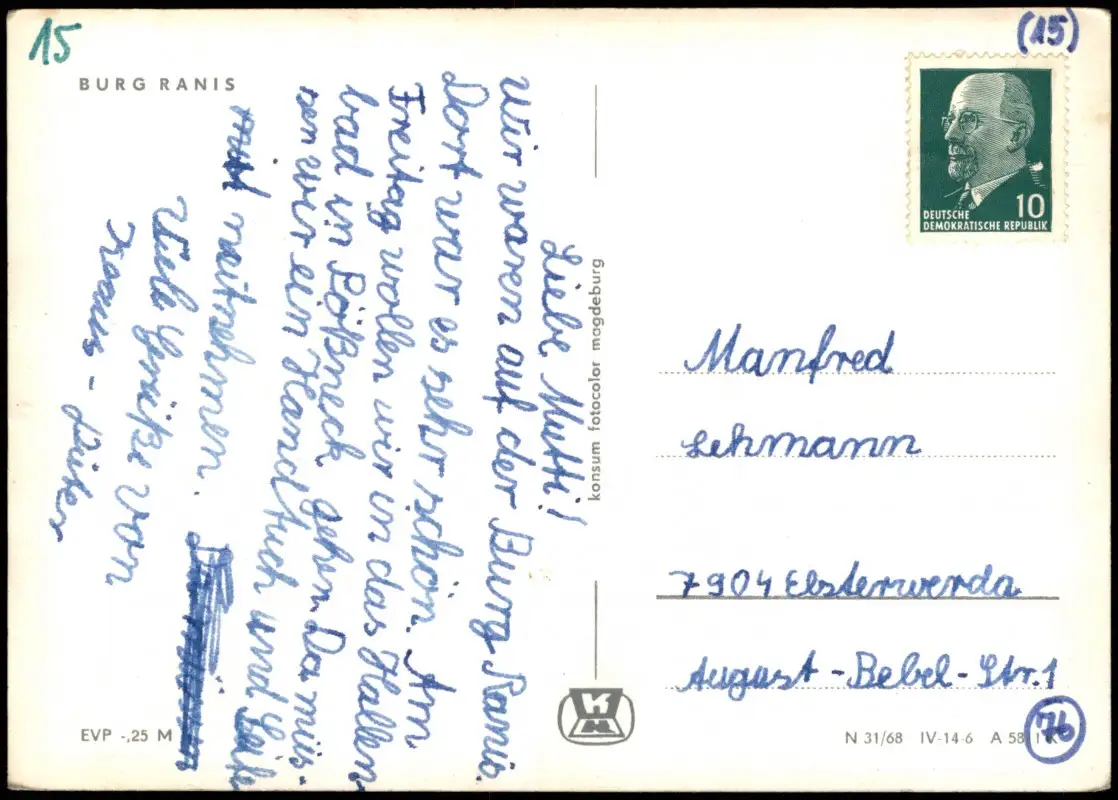 15
(15)
BURG RANIS
Liebe Mutti!
Wir waren auf der Burg Ranis.
Dort war es sehr schön. Am
Freitag wollen wir in das Hallen
bad in Pößneck gehen. Da müs-
sen wir ein Handtuch und Seife
mit mitnehmen.
Viele Grüße von
EVP -,25 M
konsum fotocolor magdeburg
DEUTSCHE
DEMOKRATISCHE REPUBLIK
10
Manfred
Lehmann
7904 Elsterwerda
August-Bebel-Str. 1
N 31/68 IV-14-6 A 58
76